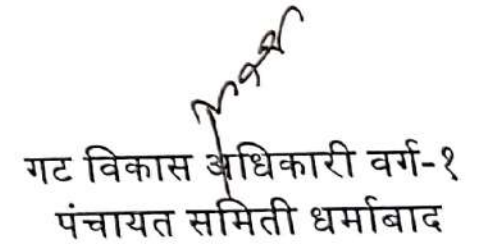 गट विकास अधिकारी वर्ग-१
पंचायत समिती धर्माबाद